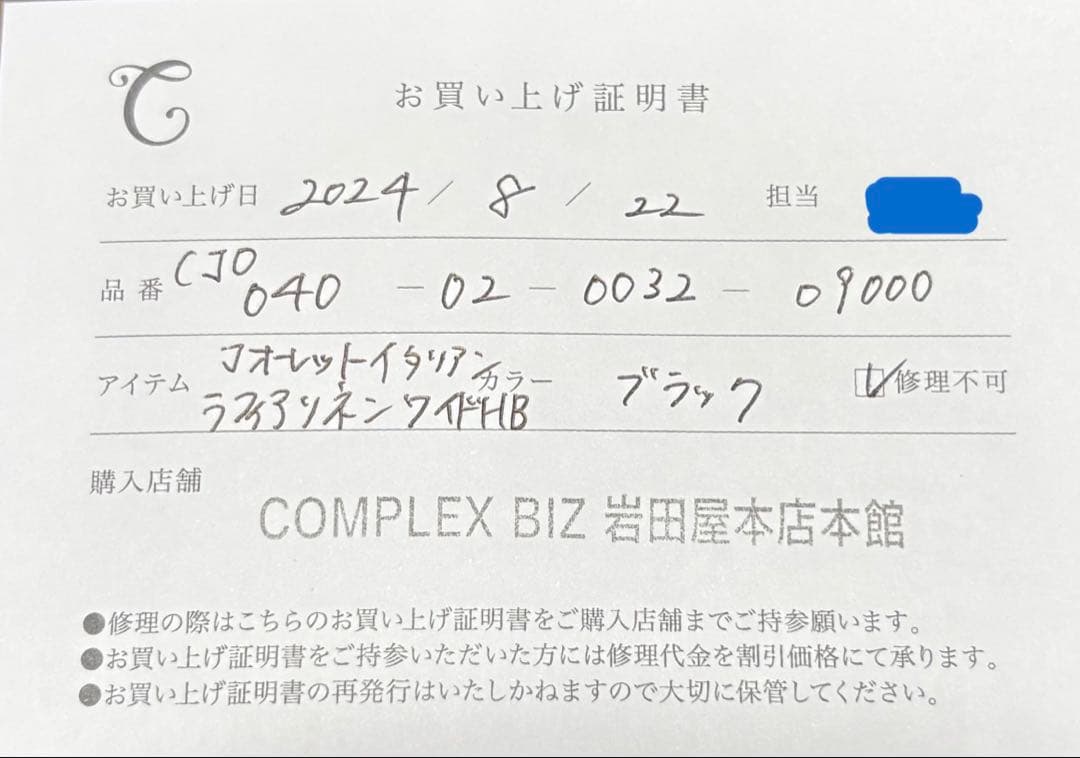 お買い上げ証明書
お買い上げ日 2024 / 8 / 22 担当
品番 CJO 040 - 02 - 0032 - 09000
アイテム コオーレットイタリアン カラー ブラック 修理不可
ラフィアリネンワイドHB
購入店舗
COMPLEX BIZ 岩田屋本店本館
●修理の際はこちらのお買い上げ証明書をご購入店舗までご持参願います。
●お買い上げ証明書をご持参いただいた方には修理代金を割引価格にて承ります。
●お買い上げ証明書の再発行はいたしかねますので大切に保管してください。